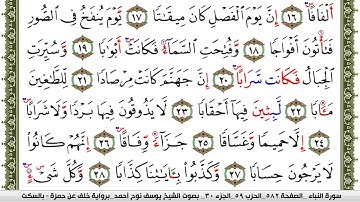 أَلْفَافًا ١٦ إِنَّ يَوْمَ ٱلْفَصْلِ كَانَ مِيقَٰتًا ١٧ يَوْمَ يُنفَخُ فِى ٱلصُّورِ
فَتَأْتُونَ أَفْوَاجًا ١٨ وَفُتِحَتِ ٱلسَّمَآءُ فَكَانَتْ أَبْوَٰبًا ١٩ وَسُيِّرَتِ
ٱلْجِبَالُ فَكَانَتْ سَرَابًا ٢٠ إِنَّ جَهَنَّمَ كَانَتْ مِرْصَادًا ٢١ لِّلطَّٰغِينَ
مَـَٔابًا ٢٢ لَّبِثِينَ فِيهَآ أَحْقَابًا ٢٣ لَّا يَذُوقُونَ فِيهَا بَرْدًا وَلَا شَرَابًا
٢٤ إِلَّا حَمِيمًا وَغَسَّاقًا ٢٥ جَزَآءً وِفَاقًا ٢٦ إِنَّهُمْ كَانُوا۟
لَا يَرْجُونَ حِسَابًا ٢٧ وَكَذَّبُوا۟ بِـَٔايَٰتِنَا كِذَّابًا ٢٨ وَكُلَّ شَىْءٍ
سورة النباء _ الصفحة ٥٨٢_ الحزب ٥٩_ الجزء ٣٠ _ بصوت الشيخ يوسف نوح أحمد_برواية خلف عن حمزة - بالسكت